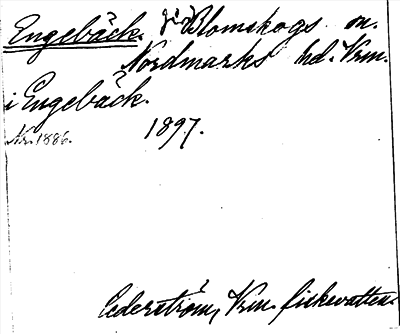 Engebäck. sjö Blomskogs sn.
Nordmarks hd. Vrm.
i Engebäck.
Nr. 1886. 1897.
Cederström, Vrm. fiskevatten.